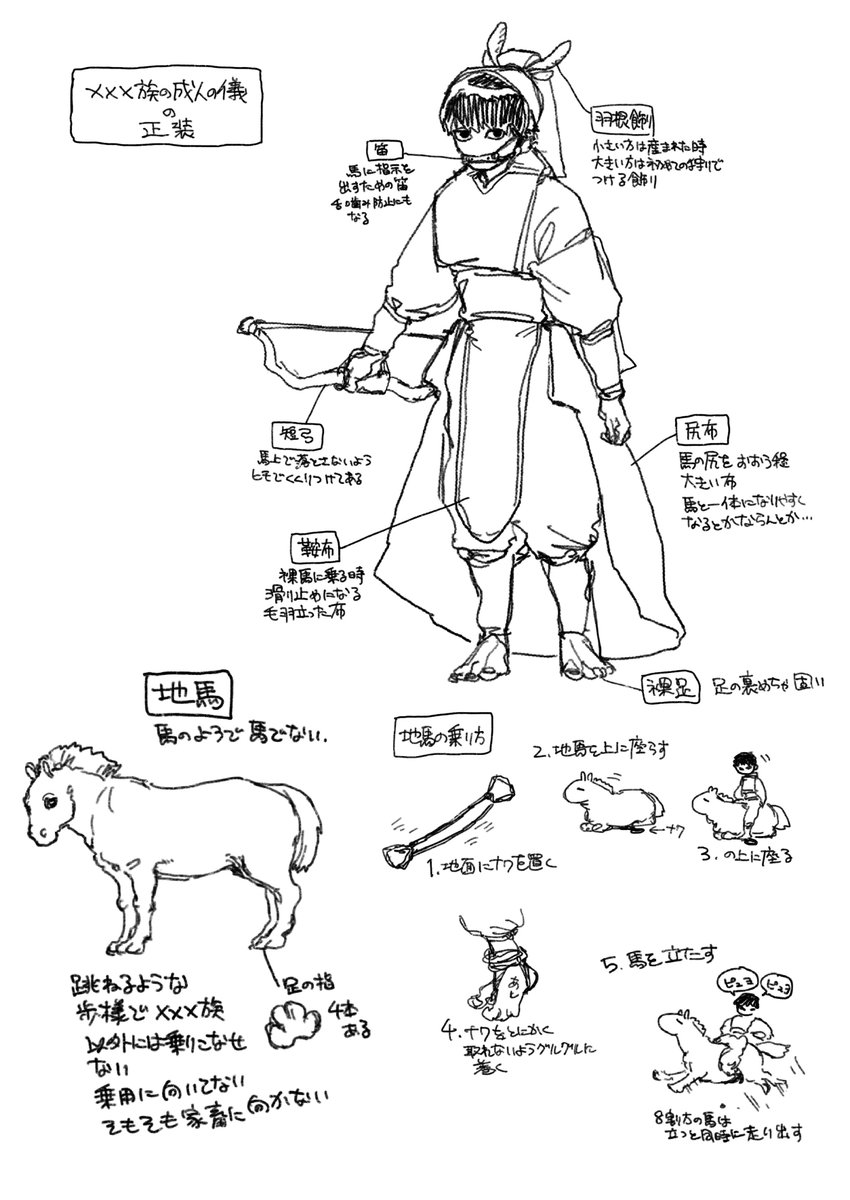 ×××族の成人の儀
の
正装
羽根飾り
小さい方は産まれた時
大きい方ははじめての狩りで
つける飾り
笛
馬に指示を
出すための笛
舌噛み防止にも
なる
短弓
馬上で落とさないよう
ヒモでくくりつけてある
尻布
馬の尻をおおう程
大きい布
馬と一体になりやすく
なるとかならんとか…
鞍布
裸馬に乗る時
滑り止めになる
毛羽立った布
裸足
足の裏めちゃ固い
地馬
馬のようで馬でない.
足の指
4本
ある
跳ねるような
歩様で×××族
以外には乗りこなせ
ない
乗用に向いてない
そもそも家畜に向かない
地馬の乗り方
1.地面にナワを置く
2.地馬を上に座らす
←ナワ
3.の上に座る
あし
4.ナワをとにかく
取れないようグルグルに
巻く
5.馬を立たす
ピュヨ
ピュヨ
8割方の馬は
立つと同時に走り出す